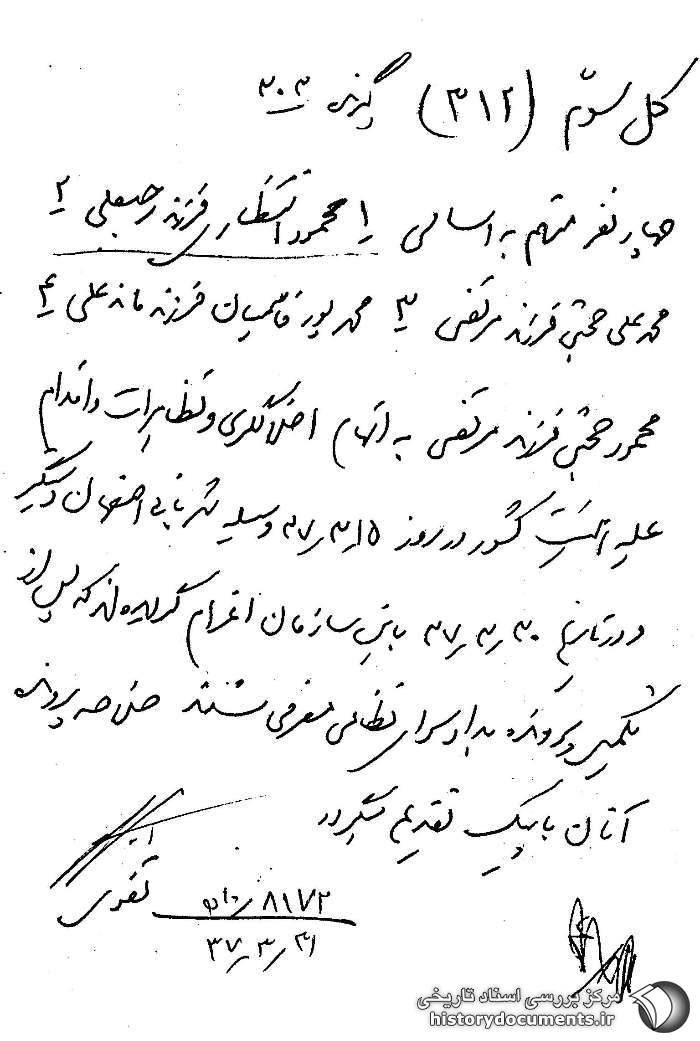 کل سوم (۳۱۲) گیرنده ۳۰۳
چهار نفر متهم به اسامی ۱ـ محمود انتظاری فرزند رجبعلی ۲ـ
محمدعلی حجتی فرزند مرتضی ۳ـ محمد پورقاسمیان فرزند مانده علی ۴ـ
محمود حجتی فرزند مرتضی به اتهام اخلالگری و تظاهرات و اقدام
علیه امنیت کشور در روز ۳۷٫۳٫۱۵ وسیله شهربانی اصفهان دستگیر
و در تاریخ ۳۷٫۳٫۳۰ باین سازمان اعزام گردیده‌اند که پس از
تکمیل پرونده بدادسرای نظامی معرفی شدند خلاصه پرونده
آنان با پیک تقدیم میگردد
تقوی
۸۱۷۲
۳۷٫۳٫۳۱
مرکز بررسی اسناد تاریخی
historydocuments.ir